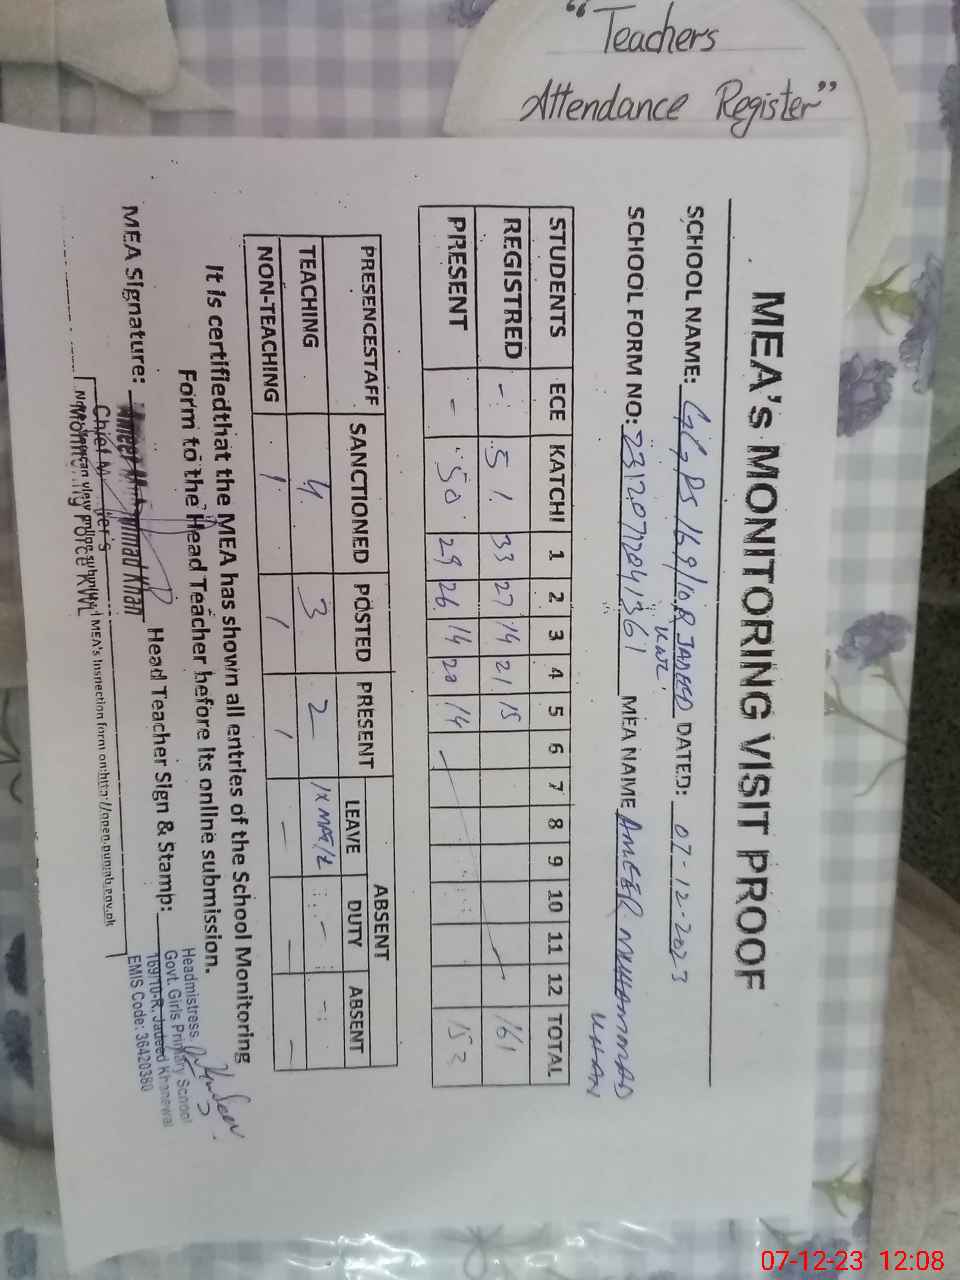 “Teachers
Attendance Register”
MEA's MONITORING VISIT PROOF
SCHOOL NAME: GGPS 169/10R JADEED KWL. DATED: 07-12-2023
SCHOOL FORM NO: MEA NAME AMEER MUHAMMAD KHAN
STUDENTS ECE KATCHI 1 2 3 4 5 6 7 8 9 10 11 12 TOTAL
REGISTRED - 51 33 27 14 21 15 161
PRESENT - 50 29 26 14 20 14 153
PRESENCESTAFF SANCTIONED POSTED PRESENT ABSENT
LEAVE DUTY ABSENT
TEACHING 4 3 2 - -
NON-TEACHING 1 1 1 - - -
It is certifiedthat the MEA has shown all entries of the School Monitoring
Form to the Head Teacher before its online submission.
MEA Signature: Head Teacher Sign & Stamp:
Ameer Muhammad Khan
Headmistress
Govt. Girls Primary School
169/10-R, Jadeed Khanewal
EMIS Code: 36420380
Monitoring Force KWL
07-12-23 12:08